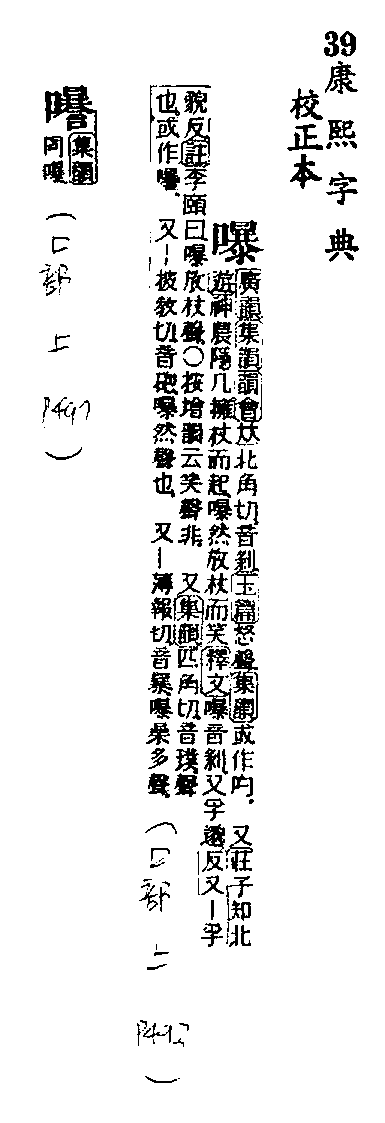 39
康熙字典
校正本
嚗
廣韻集韻韻會𠀤北角切音剝玉篇怒聲集韻或作㕭又莊子知北
遊神農隱几擁杖而起嚗然放杖而笑釋文嚗音剝又孚邈反又一孚
貌反註李頤曰嚗放杖聲〇按增韻云笑聲非又集韻匹角切音璞聲
也或作㬥又一披敎切音砲嚗然聲也又一薄報切音暴嚗嚗多聲
(口部上
P492)
集韻
同嚗
(口部上
P497)